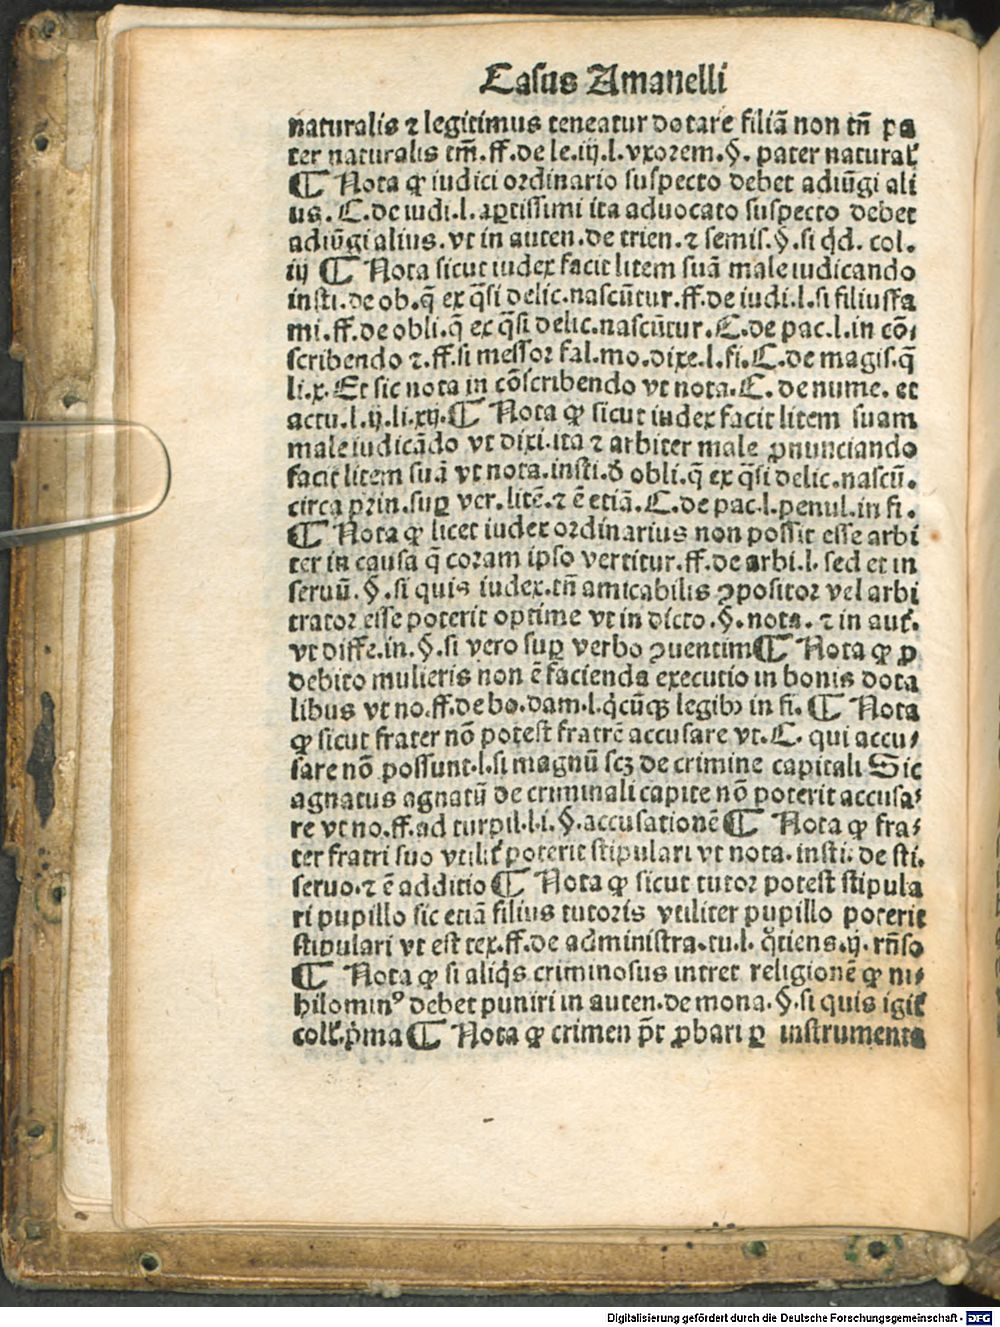 Casus Amanelli
naturalis ⁊ legitimus teneatur dotare filiā non tñ pa
ter naturalis tm̄.ff.de le.iij.l.vxorem.§. pater natural̕
¶ Nota ꝙ iudici ordinario suspecto debet adiūgi ali
us. C.de iudi.l. aꝑtissimi ita aduocato suspecto debet
adiūgi alius.vt in auten.de trien.⁊ semis.§.si qd̄. col.
iij ¶ Nota sicut iudex facit litem suā male iudicando
insti.de ob.q̄ ex q̄si delic.nascūtur.ff.de iudi.l.si filiusfa
mi.ff.de obli.q̄ ex q̄si delic.nascūtur.C.de pac.l.in cō⸗
scribendo ⁊.ff.si messor fal.mo.dixe.l.fi.C.de magis.q̄
li.x.Et sic nota in cōscribendo vt nota.C. de nume. et
actu.l.ij.li.xij.¶ Nota ꝙ sicut iudex facit litem suam
male iudicādo vt dixi.ita ⁊ arbiter male ꝓnunciando
facit litem suā vt nota.insti.ð obli.q̄ ex q̄si delic.nascū.
circa prin.suꝑ ver.litē.⁊ ē etiā.C.de pac.l.penul.in fi.
¶ Nota ꝙ licet iudex ordinarius non possit esse arbi
ter in causa q̄ coram ipso vertitur.ff.de arbi.l. sed et in
seruū.§.si quis iudex.tñ amicabilis ꝯpositor vel arbi
trator esse poterit optime vt in dicto.§.nota. ⁊ in aut̕.
vt diffe.in.§.si vero suꝑ verbo ꝯuentim¶ Nota ꝙ ꝓ
debito mulieris non ē facienda executio in bonis dota
libus vt no.ff.de bo.dam.l.q̇cūqꝫ legibꝰ in fi. ¶ Nota
ꝙ sicut frater nō potest fratrē accusare vt.C. qui accu⸗
sare nō possunt.l.si magnū scꝫ de crimine capitali Sic
agnatus agnatū de criminali capite nō poterit accusa⸗
re vt no.ff.ad turpil.l.i.§.accusationē ¶ Nota ꝙ fra⸗
ter fratri suo vtilit̕ poterit stipulari vt nota. insti. de sti.
seruo.⁊ ē additio ¶ Nota ꝙ sicut tutor potest stipula
ri pupillo sic etiā filius tutoris vtiliter pupillo poterit
stipulari vt est tex.ff.de administra.tu.l. q̇tiens.ij. rn̄so
¶ Nota ꝙ si aliq̇s criminosus intret religionē ꝙ ni⸗
hilominꝰ debet puniri in auten.de mona.§.si quis igit̕
coll̕.ṗma ¶ Nota ꝙ crimen pt̄ ꝓbari ꝑ instrumenta
Digitalisierung gefördert durch die Deutsche Forschungsgemeinschaft - DFG